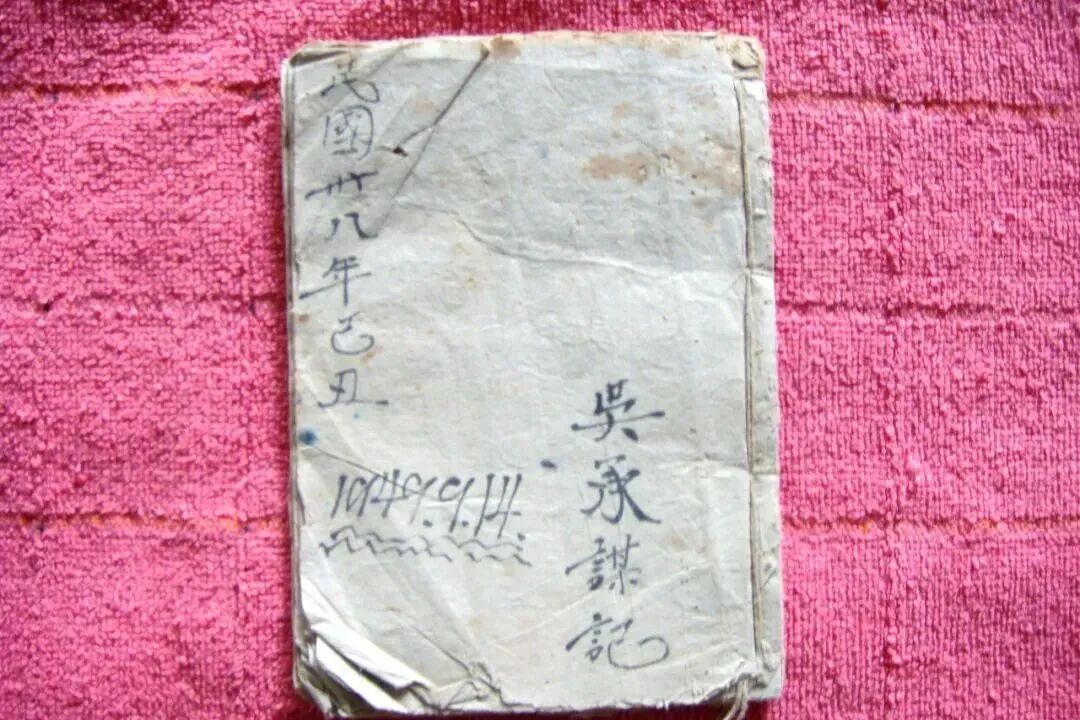 民國卅八年己丑
1949.9.14.
吳承謀記